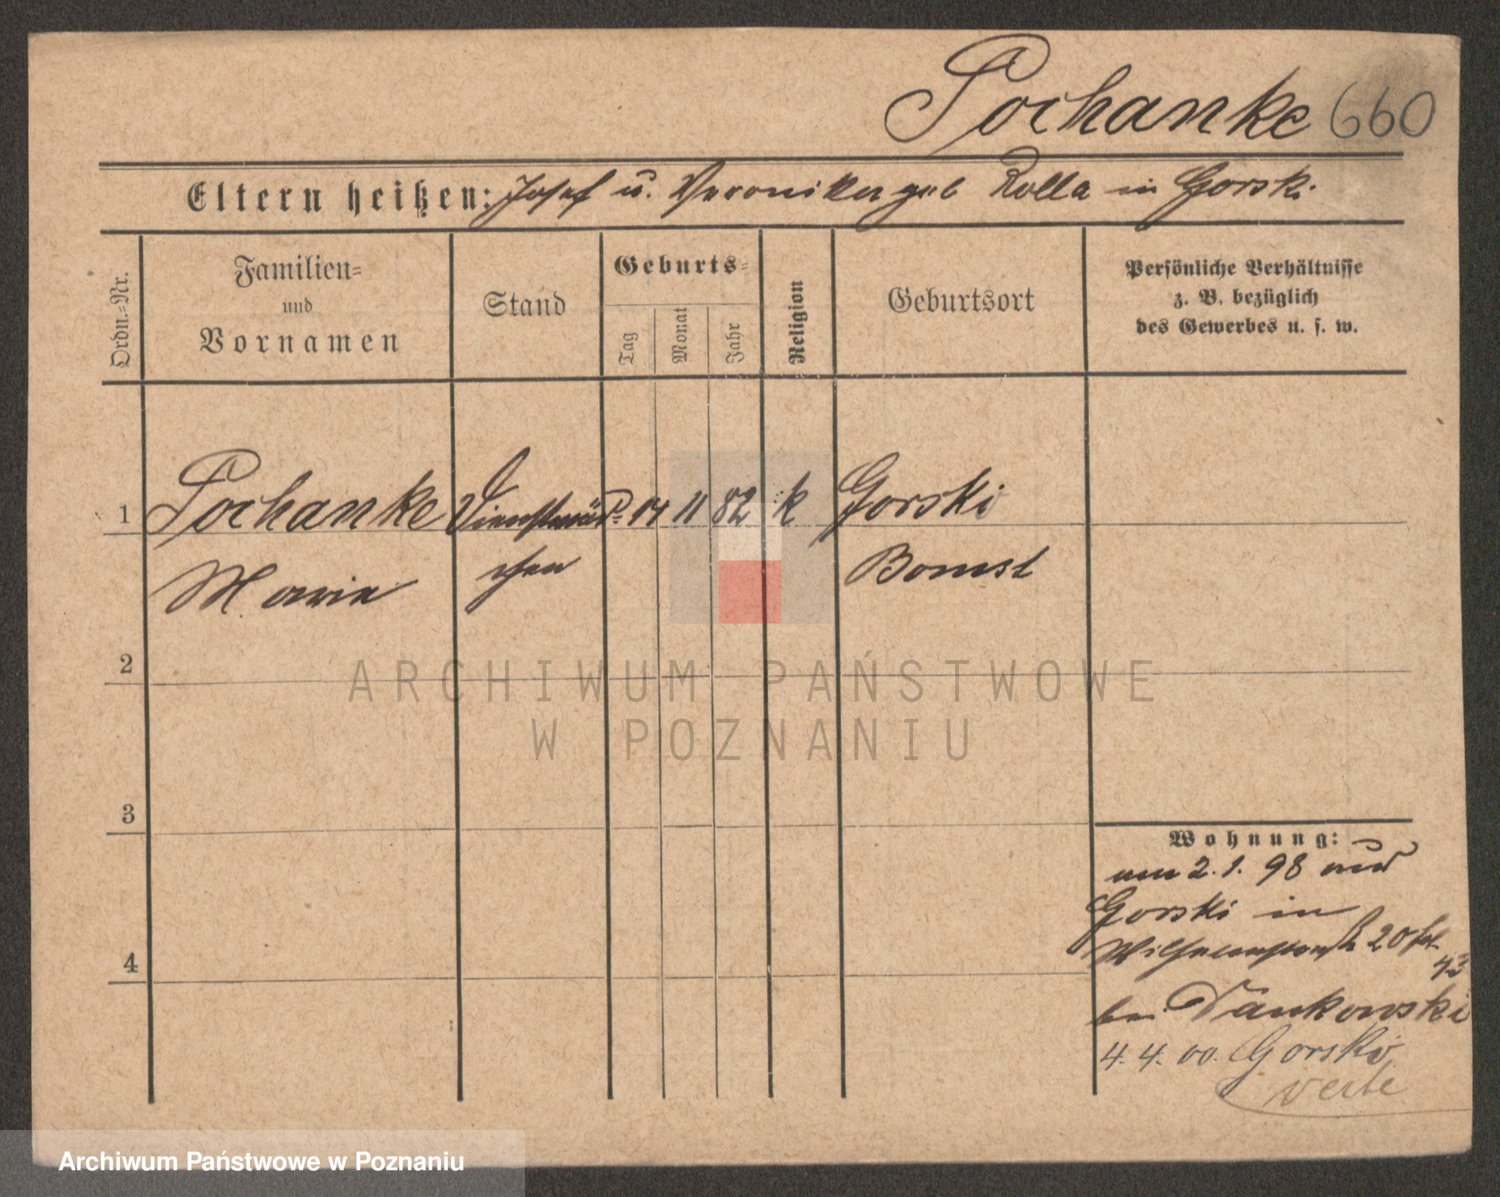 Pochanke 660
Eltern heißen: Josef u. Veronika geb Rolla in Gorsk.
Ordn.-Nr.
Familien-
und
Vornamen
Stand
Geburts-
Tag
Monat
Jahr
Religion
Geburtsort
Persönliche Verhältnisse
z. B. bezüglich
des Gewerbes u. s. w.
1 Pochanke Dienstmäd- 14 11 82 k Gorski
Marie chen Bomst
2
ARCHIWUM PAŃSTWOWE
W POZNANIU
3
4
Wohnung:
am 2.1.98 aus
Gorski in
20
bei Dankowski
4.4.00. Gorski
verte
Archiwum Państwowe w Poznaniu